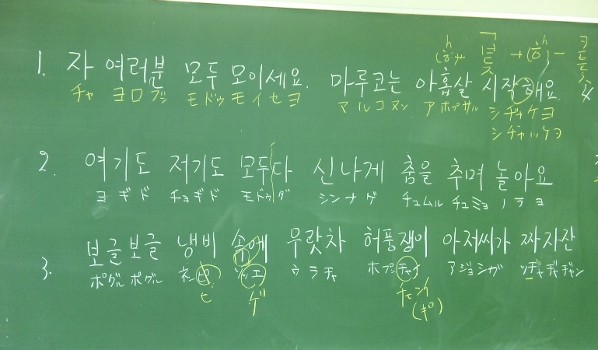 1. 자 여러분 모두 모이세요. 마루코는 아홉살 시작해요
チャ ヨロブン モドゥ モイセヨ マルコヌン アホプサル シヂャケヨ
シヂャッケヨ
2. 여기도 저기도 모두다 신나게 춤을 추며 놀아요
ヨギド チョギド モドゥダ シンナゲ チュムル チュミョ ノラヨ
3. 보글보글 냄비 속에 우랏차 허풍쟁이 아저씨가 짜지잔
ポグルポグル ウラチャ アジョシガ
ビ ゲ チェンイ
(ギ)